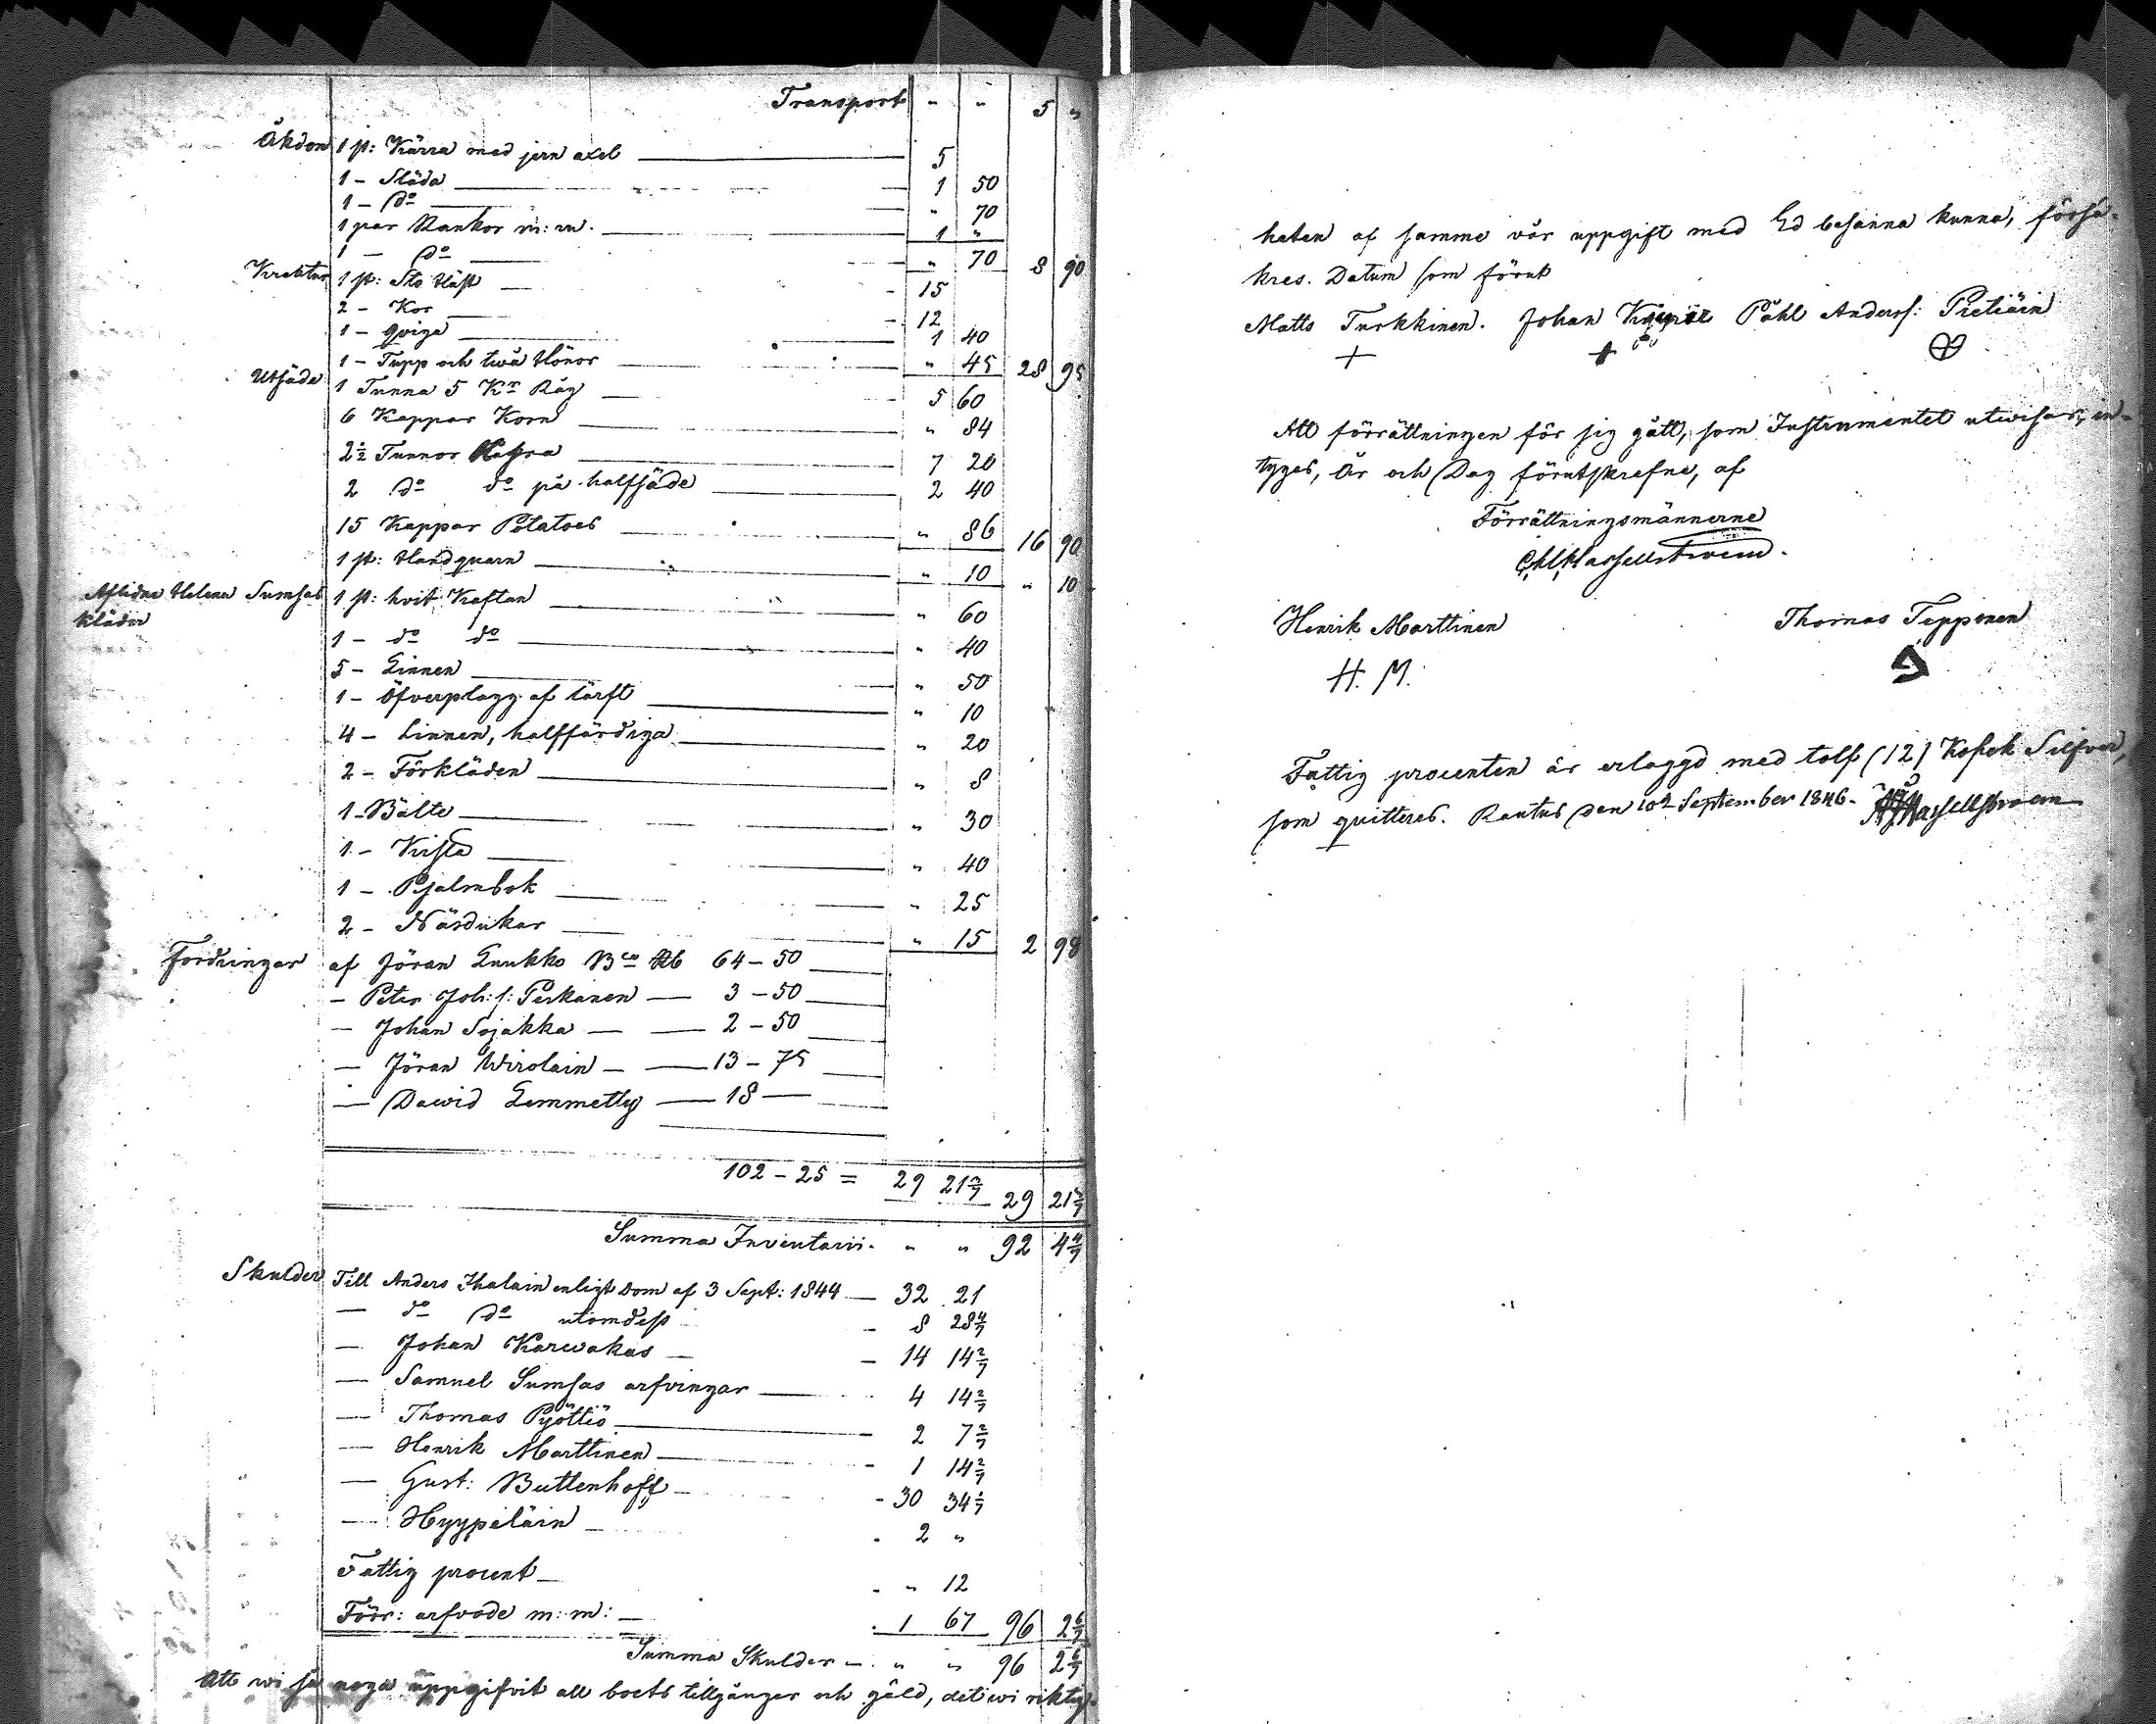 Transport " " 5 "
Åkdon 1 st: Kärra med jern axel 5
1 - Släda 1 50
1 - do " 70
1 par Rankor m: m. 1 "
1 - do " 70 8 90
Kreatur 1 st: Sto Häst 15
2 - Kor 12
1 - Qviga 1 40
1 - Tupp och twå Hönor " 45 28 95
Utsäde 1 Tunna 5 Kr Råg 5 60
6 Kappar Korn " 84
2½ Tunnor Hafra 7 20
2 do do på halfsäde 2 40
15 Kappar Potatoes " 86 16 90
1 st: Handquarn " 10 " 10
Aflidne Helena Sumsas 1 st: hvit Kaftan " 60
Kläder
1 - do do " 40
5 - Linnen " 50
1 - Öfverplagg af lärft " 10
4 - Linnen, halffärdiga " 20
2 - Förkläden " 8
1 - Bälte " 30
1 - Kista " 40
1 - Psalmbok " 25
2 - Näsdukar " 15 2 98
Fordringar af Jöran Luukko Bco Rb 64 - 50
- Peter Joh: s: Perkanen - 3 - 50
- Johan Sojakka - 2 - 50
- Jöran Wirolain - 13 - 75
- Dawid Lemmetty - 18 -
102 - 25 = 29 21 3/7 29 21 3/7
Summa Inventarii. " " 92 4 4/7
Skulder Till Anders Ihalain enligt dom af 3 Sept: 1844 - 32 21
- do do utomdess - 8 28 4/7
- Johan Karwakas - 14 14 2/7
- Samuel Sumsas arfvingar 4 14 2/7
- Thomas Pyöttiö - 2 7 2/7
- Henrik Marttinen - 1 14 2/7
- Gust: Buttenhoff - 30 34 2/7
- Hyypeläin - 2 "
Fattig procent - " 12
Förr: arfvode m: m: - 1 67 96 2 6/7
Summa Skulder - " " 96 2 6/7
Att wi så noga uppgifvit all boets tillgångar och gäld, det wi riktig-
heten af samme vår uppgift med Ed besanna kunna, försä-
kres. Datum som förut
Matts Turkkinen. Johan Påhl Anderss: Pietiäin
Att förrättningen för sig gått, som Instrumentet utwisar, in-
tygas, År och Dag förutskrefne, af
Förrättningsmännerne
Hasselstroem.
Henrik Marttinen Thomas Tepponen
H. M.
Fattig procenten är erlaggd med tolf (12) Kopek Silfver,
som quitteras. Rautus den 10de September 1846. Hassellstroem